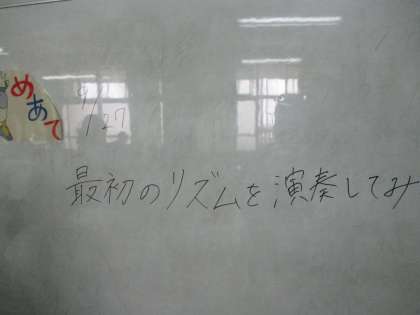 めあて
9/27
最初のリズムを演奏してみ